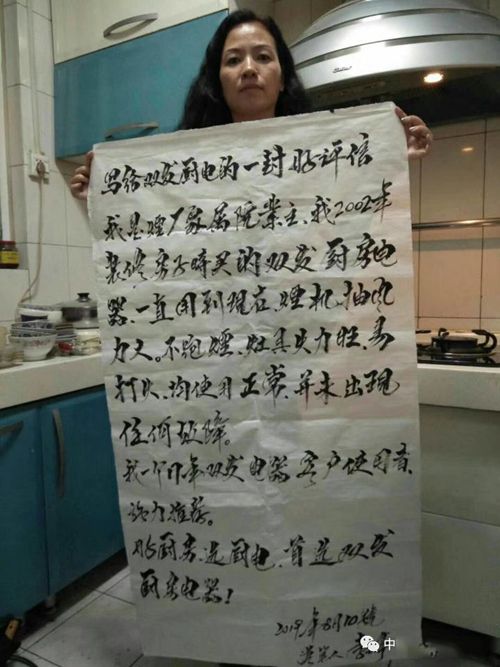 写给双发厨电的一封好评信
我是烟厂家属院业主、我2002年
装修房子时买的双发厨房电
器、一直用到现在、烟机、抽风
力大。不跑烟、灶具火力旺、易
打火、均使用正常、并未出现
任何故障。
我一个17年双发电器客户使用者、
强力推荐。
好厨房、选厨电、首选双发
厨房电器!
2019年8月10号
中